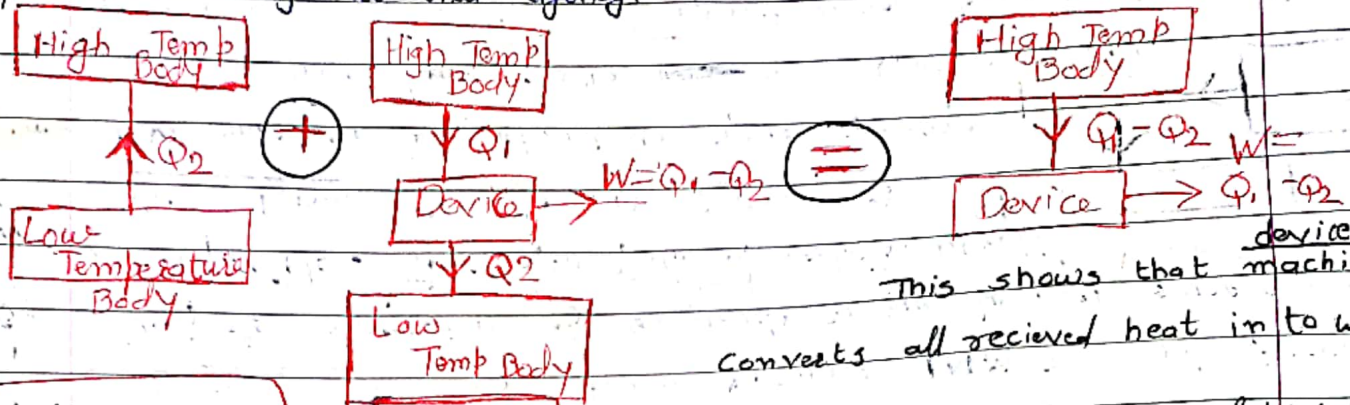 High Temp
Body
Q2
Low
Temperature
Body.
+
High Temp
Body.
Q1
Device
W=Q1-Q2
Q2
Low
Temp Body
≡
High Temp
Body
Q1-Q2
Device
W=
Q1-Q2
device
This shows that
converts all recieved heat in to